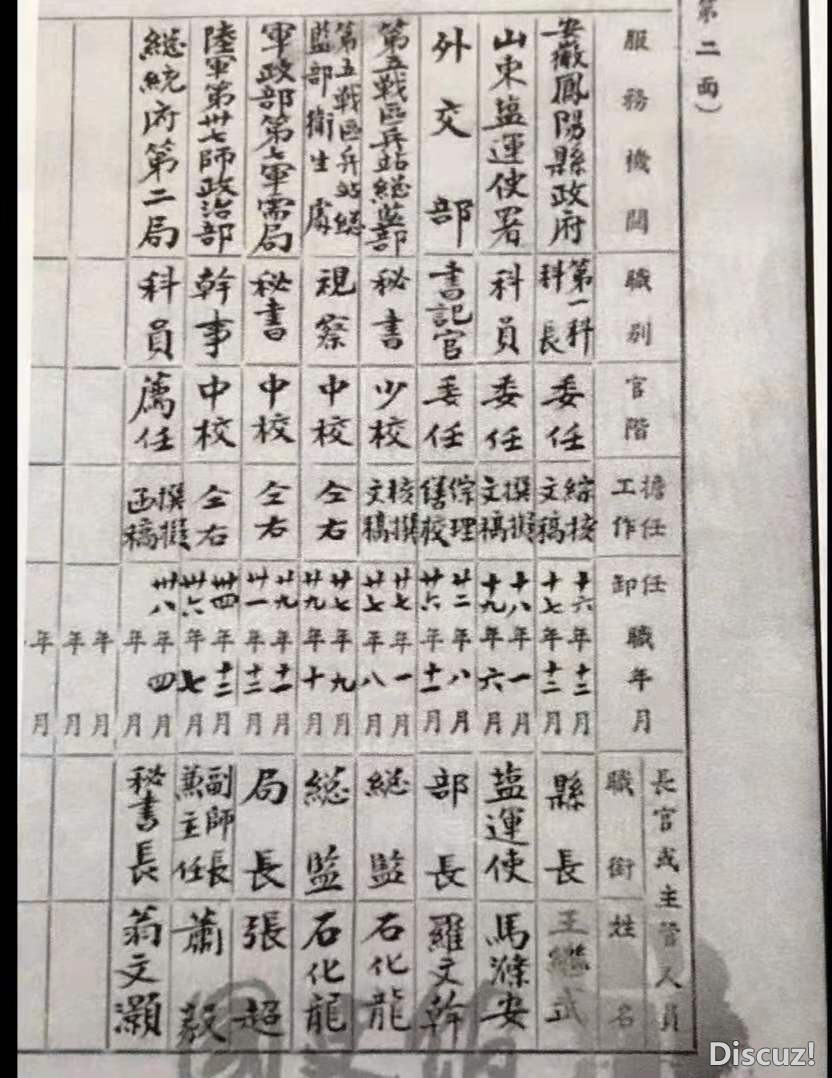 第二面）
服務機關
職別
官階
擔任
工作
任
卸
職年月
長官或主管人員
職銜
姓名
安徽鳳陽縣政府
第一科
科長
委任
綜核
文稿
十六年十二月
十七年十二月
縣長
王繼武
山東盐運使署
科員
委任
撰擬
文稿
十八年一月
十九年六月
盐運使
馬滌安
外交部
書記官
委任
综理
繕校
廿二年八月
廿六年十一月
部長
羅文幹
第五戰區兵站総監部
秘書
少校
核撰
文稿
廿七年一月
廿七年八月
総監
石化龍
第五戰區兵站総
監部衛生處
視察
中校
仝右
廿七年九月
廿九年十月
総監
石化龍
軍政部第七軍需局
秘書
中校
仝右
廿九年十一月
卅一年十二月
局長
張超
陸軍第卅七師政治部
幹事
中校
仝右
卅四年十二月
卅六年七月
副師長
兼主任
蕭毅
総統府第二局
科員
薦任
撰擬
函稿
卅八年四月
年月
秘書長
翁文灝
年月
年月
年月
國史館
Discuz!